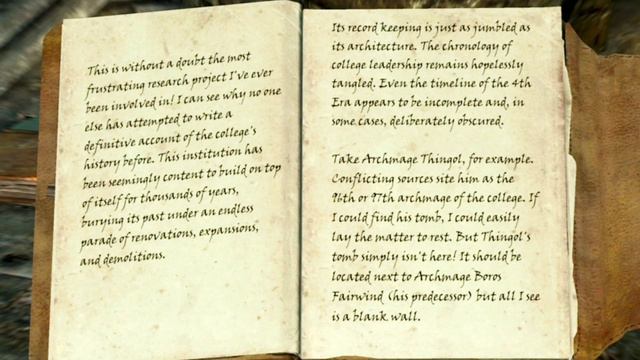 This is without a doubt the most
frustrating research project I've ever
been involved in! I can see why no one
else has attempted to write a
definitive account of the college's
history before. This institution has
been seemingly content to build on top
of itself for thousands of years,
burying its past under an endless
parade of renovations, expansions,
and demolitions.
Its record keeping is just as jumbled as
its architecture. The chronology of
college leadership remains hopelessly
tangled. Even the timeline of the 4th
Era appears to be incomplete and, in
some cases, deliberately obscured.
Take Archmage Thingol, for example.
Conflicting sources site him as the
96th or 97th archmage of the college. If
I could find his tomb, I could easily
lay the matter to rest. But Thingol's
tomb simply isn't here! It should be
located next to Archmage Boros
Fairwind (his predecessor) but all I see
is a blank wall.